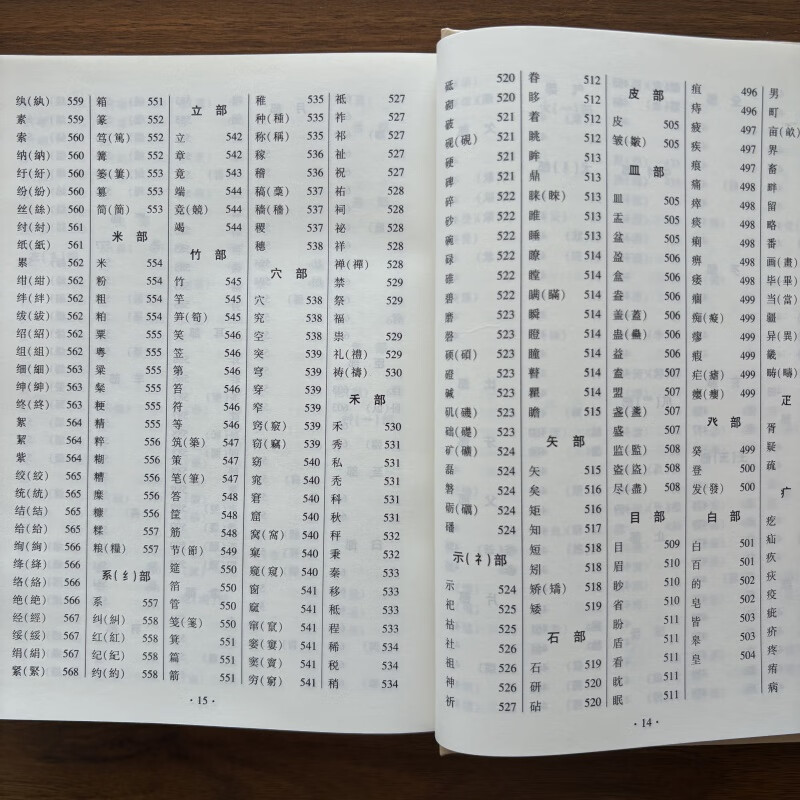 男
町
亩(畝
界
畜
畔
留
略
番
画(畫
毕(畢
当(當
疆
异(異
畿
畴(疇
疋
胥
疑
疏
疒
疙
疝
疾
疫
疥
疼
痏
病
疽 496
痔 496
疲 497
疾 497
痕 497
痛 498
瘁 498
痰 498
痢 498
痹 498
痿 498
痼 499
痴(癡) 499
瘳 499
瘕 499
疟(瘧) 499
瘿(癭) 499
癶 部
癸 499
登 500
发(發) 500
白 部
白 501
百 501
的 502
皂 502
皆 503
皋 503
皇 504
皮 部
皮 505
皱(皺) 505
皿 部
皿 505
盂 505
盆 506
盈 506
盒 506
盎 506
盖(蓋) 506
蛊(蠱) 506
益 506
盍 507
盟 507
盏(盞) 507
盛 507
监(監) 508
盗(盜) 508
尽(盡) 508
目 部
目 509
眉 510
眇 510
省 510
盼 511
盾 511
看 511
眈 511
眠 511
眷 512
眵 512
着 512
眺 512
眸 513
鼎 513
睐(睞) 513
睢 513
睡 513
瞭 514
瞠 514
瞒(瞞) 514
瞬 514
瞪 514
瞳 514
瞽 514
瞿 514
瞻 515
矢 部
矢 515
矣 516
矩 516
知 517
短 518
矧 518
矫(矯) 518
矮 518
石 部
石 519
研 520
砧 520
砥 520
破 521
砚(硯) 521
硬 521
碑 522
碎 522
砂 522
碗 522
碌 522
碧 522
磨 522
磬 523
硕(碩) 523
磴 523
碱 523
矶(磯) 523
础(礎) 523
矿(礦) 523
磊 524
磐 524
砺(礪) 524
磻 524
示(礻)部
示 524
祀 525
祜 525
社 525
祖 526
神 526
祈 527
· 14 ·
祗 527
祚 527
祁 527
祉 527
祝 527
祐 528
祠 528
祕 528
祥 528
禅(禪) 528
禁 529
祭 529
福 529
祟 529
礼(禮) 529
祷(禱) 530
禾 部
禾 530
秀 531
私 531
秃 531
科 531
秋 531
秤 532
秉 532
秦 533
移 533
秪 533
程 533
稀 534
税 534
稍 534
稚 535
种(種) 535
称(稱) 535
稼 536
稽 536
稿(稾) 537
穑(穡) 537
稷 537
穗 538
穴 部
穴 538
究 538
空 538
突 539
穹 539
穿 539
窄 539
窍(竅) 539
窃(竊) 539
窈 540
窕 540
窘 540
窟 540
窝(窩) 540
窠 540
窥(窺) 540
窗 541
窳 541
窜(竄) 541
窭(窶) 541
窦(竇) 541
穷(窮) 541
立 部
立 542
章 542
竟 543
端 544
竞(競) 544
竭 544
竹 部
竹 545
竿 545
笋(筍) 545
笠 546
第 546
笞 546
符 546
等 546
筑(築) 547
策 547
笔(筆) 547
答 548
筐 548
筋 548
节(節) 549
筵 550
箔 550
管 550
笺(箋) 550
箕 551
篇 551
箭 551
箱 551
篆 552
笃(篤) 552
篝 552
篓(簍) 552
篡 553
简(簡) 553
米 部
米 554
粉 554
粗 554
粕 554
粟 555
粤 555
粱 555
粲 555
粳 555
精 555
粹 556
糊 556
糟 556
糜 556
糠 556
糅 557
粮(糧) 557
系(纟)部
系 557
纠(糾) 558
红(紅) 558
纪(紀) 558
约(約) 558
纨(紈) 559
素 559
索 560
纳(納) 560
纡(紆) 560
纷(紛) 560
丝(絲) 560
纣(紂) 561
纸(紙) 561
累 562
绀(紺) 562
绊(絆) 562
绂(紱) 562
绍(紹) 562
组(組) 562
细(細) 563
绅(紳) 563
终(終) 563
絮 564
絜 564
紫 564
绞(絞) 565
统(統) 565
结(結) 565
给(給) 565
绚(絢) 566
绛(絳) 566
络(絡) 566
绝(絶) 566
经(經) 567
绥(綏) 567
绢(絹) 567
紧(緊) 568
· 15 ·